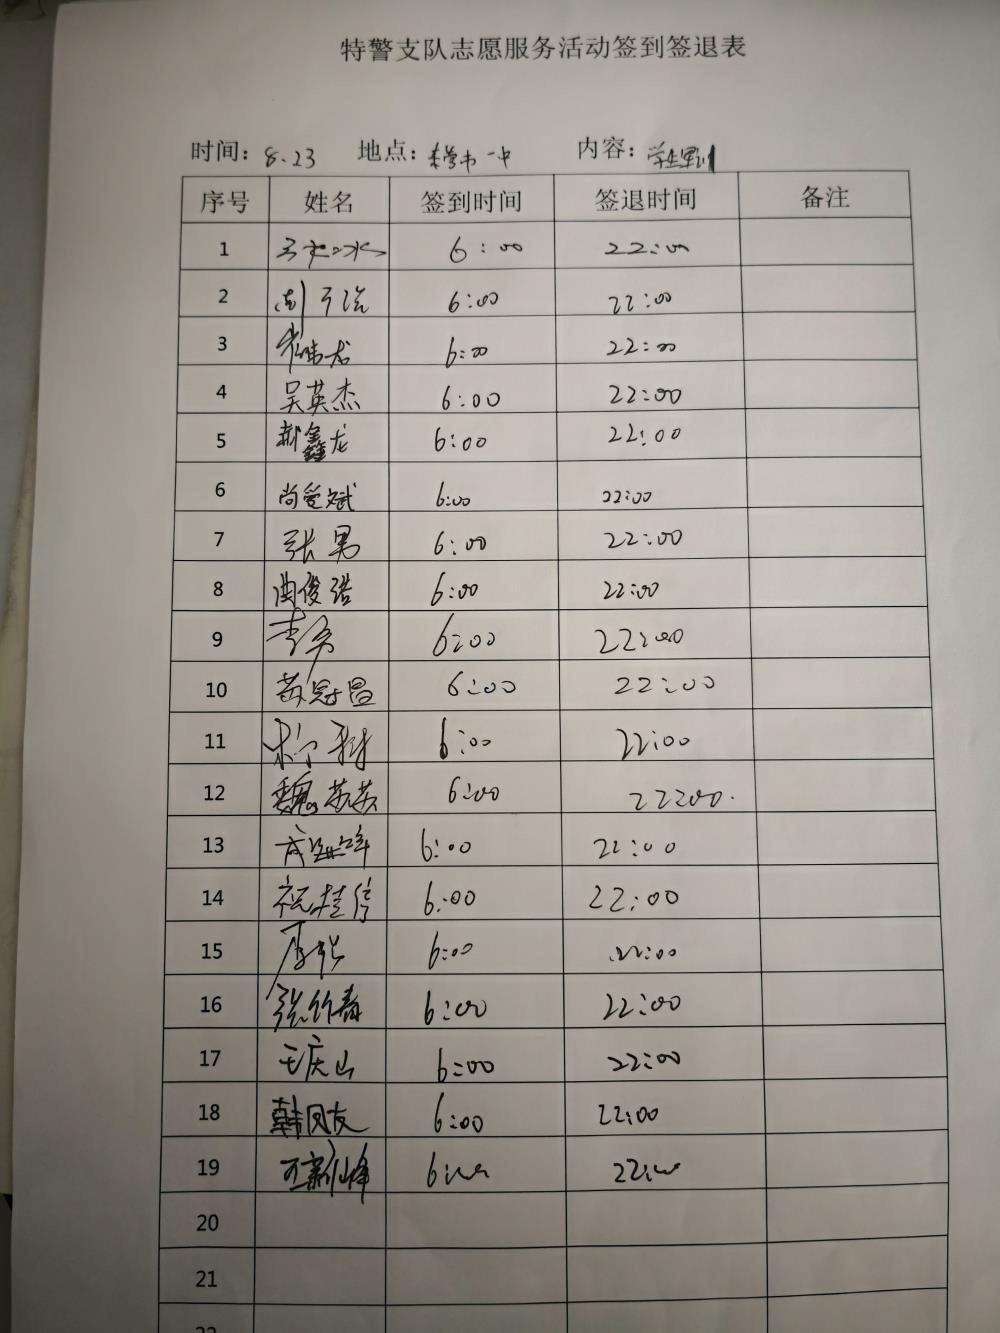 特警支队志愿服务活动签到签退表
时间：8.23 地点： 一中 内容：学生军训
序号 姓名 签到时间 签退时间 备注
1 6:00 22:00
2 6:00 22:00
3 6:00 22:00
4 吴英杰 6:00 22:00
5 郝鑫龙 6:00 22:00
6 尚爱斌 6:00 22:00
7 张男 6:00 22:00
8 曲俊 6:00 22:00
9 6:00 22:00
10 黄冠昌 6:00 22:00
11 6:00 22:00
12 魏苏苏 6:00 22:00.
13 6:00 22:00
14 祝桂 6:00 22:00
15 6:00 22:00
16 张竹青 6:00 22:00
17 王庆山 6:00 22:00
18 韩凤友 6:00 22:00
19 王新峰 6:00 22:00
20
21
22